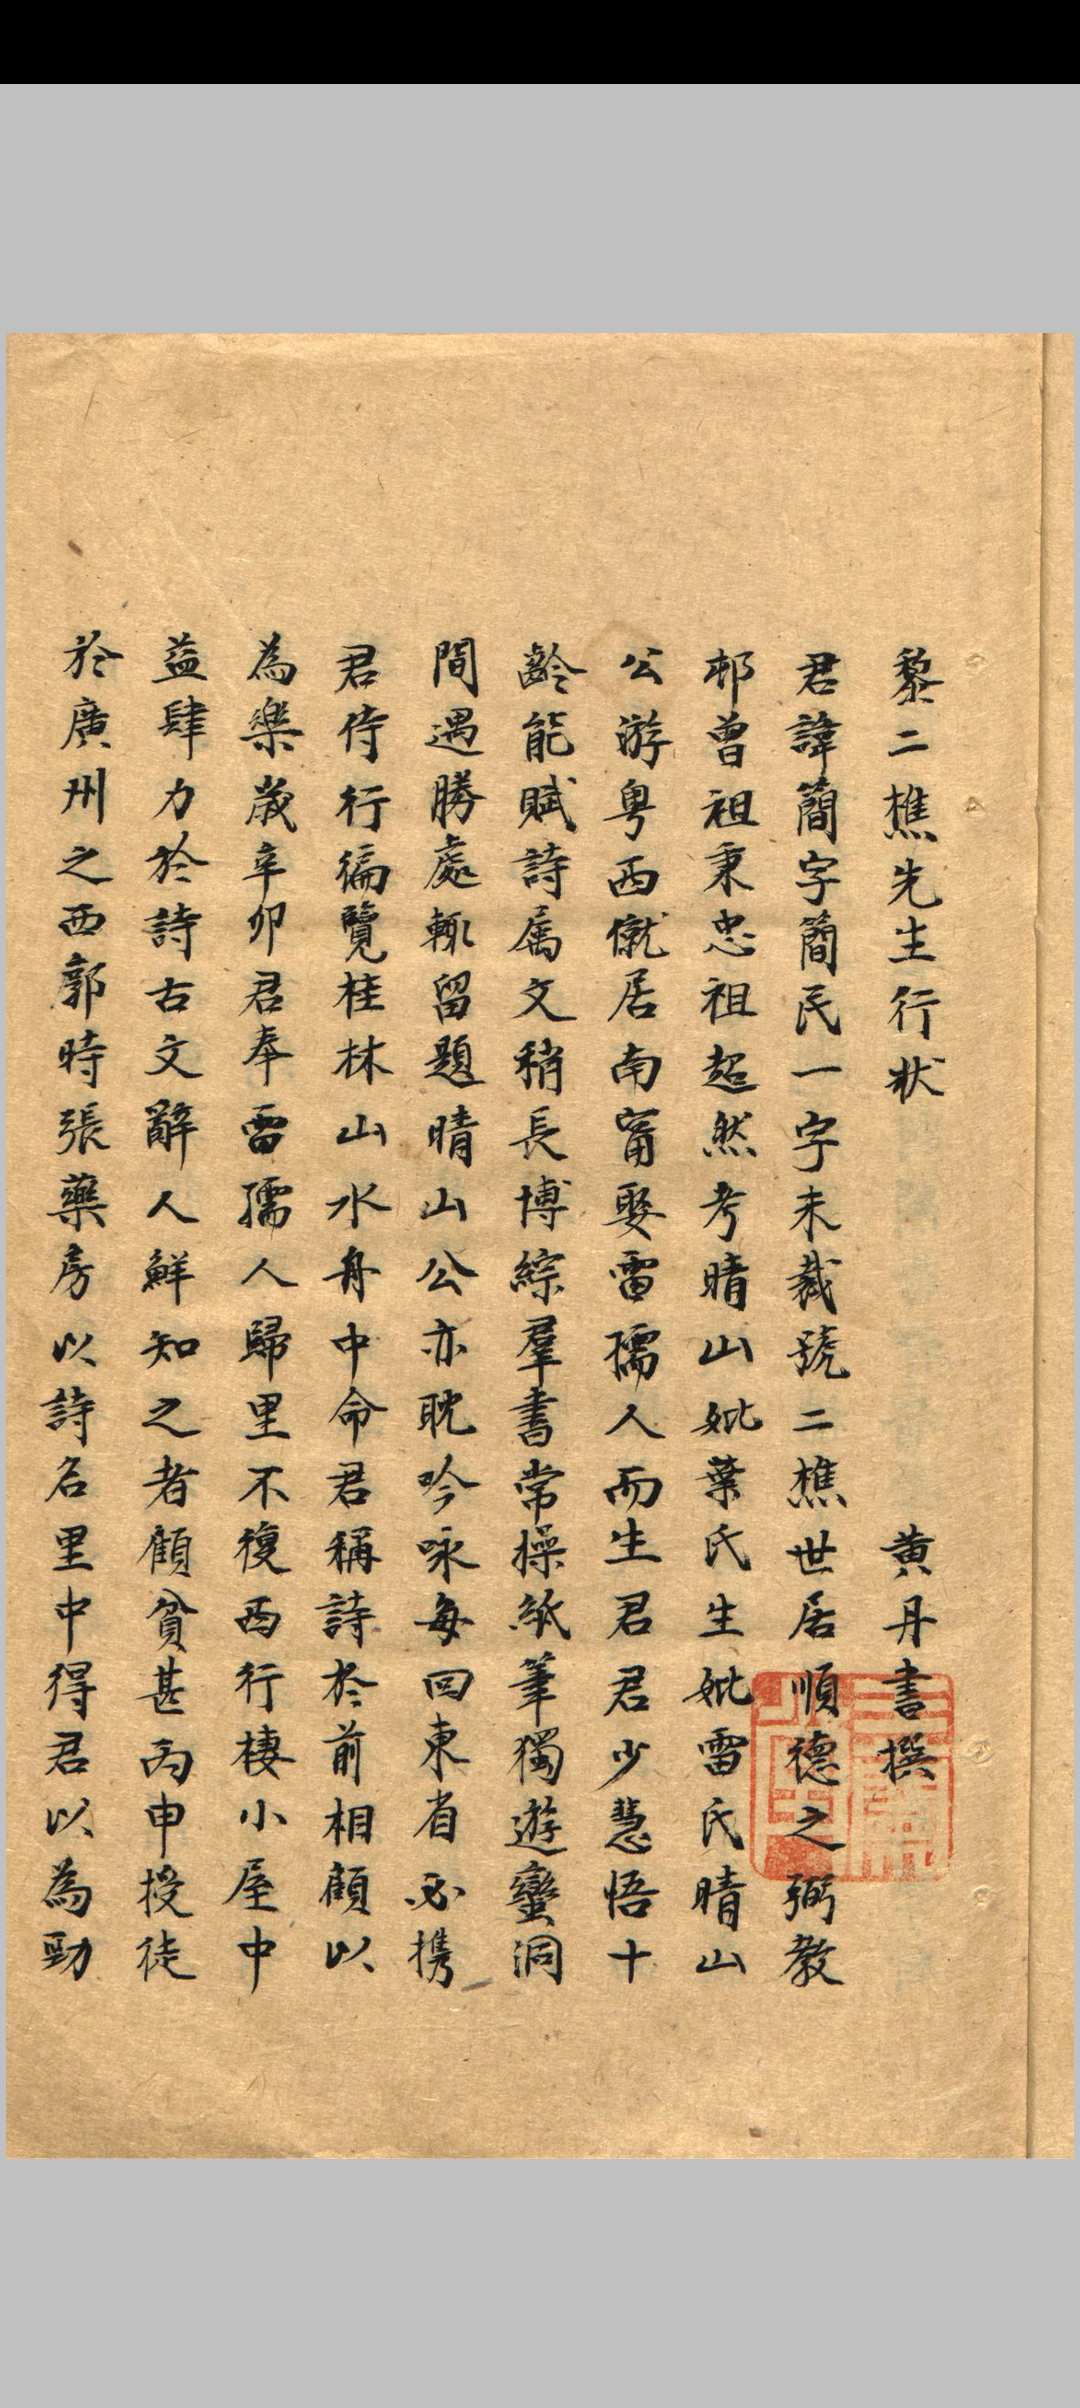 黎二樵先生行狀 黄丹書撰
君諱簡字簡民一字未裁號二樵世居順德之弼教
邨曾祖秉忠祖超然考晴山妣葉氏生妣雷氏晴山
公游粤西僦居南甯娶雷孺人而生君君少慧悟十
齡能賦詩属文稍長博綜羣書常操紙筆獨遊蠻洞
間遇勝處輒留題晴山公亦耽吟咏每回東省必携
君侍行徧覽桂林山水舟中命君稱詩於前相顧以
為樂歲辛卯君奉雷孺人歸里不復西行棲小屋中
益肆力於詩古文辭人鮮知之者顧貧甚丙申授徒
於廣州之西郭時張藥房以詩名里中得君以為勁